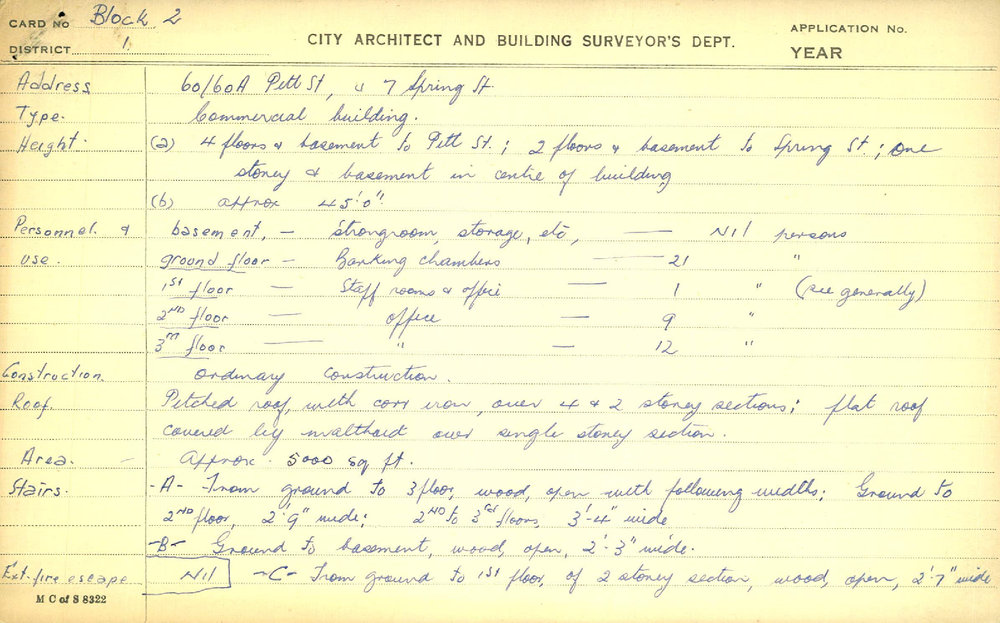 CARD No Block 2
DISTRICT 1
CITY ARCHITECT AND BUILDING SURVEYOR'S DEPT.
APPLICATION No.
YEAR
Address 60/60A Pitt St, & 7 Spring St.
Type. Commercial building.
Height. (a) 4 floors & basement to Pitt St.; 2 floors & basement to Spring St.; one
storey & basement in centre of building
(b) approx 45'0"
Personnel & basement, — strongroom, storage, etc, — Nil persons
use. ground floor — Banking chambers — 21 "
1ST floor — Staff rooms & office — 1 " (see generally)
2ND floor — office — 9 "
3RD floor — " — 12 "
Construction. ordinary construction.
Roof. Pitched roof, with corr iron, over 4 & 2 storey sections; flat roof
covered by malthoid over single storey section.
Area. — approx. 5000 sq ft.
Stairs. -A- From ground to 3 floor, wood, open with following widths; Ground to
2ND floor, 2'9" wide; 2ND to 3rd floors, 3'-4" wide
-B- Ground to basement, wood, open, 2'-3" wide.
Ext. fire escape Nil -C- From ground to 1ST floor, of 2 storey section, wood, open, 2'-7" wide
M C of S 8322